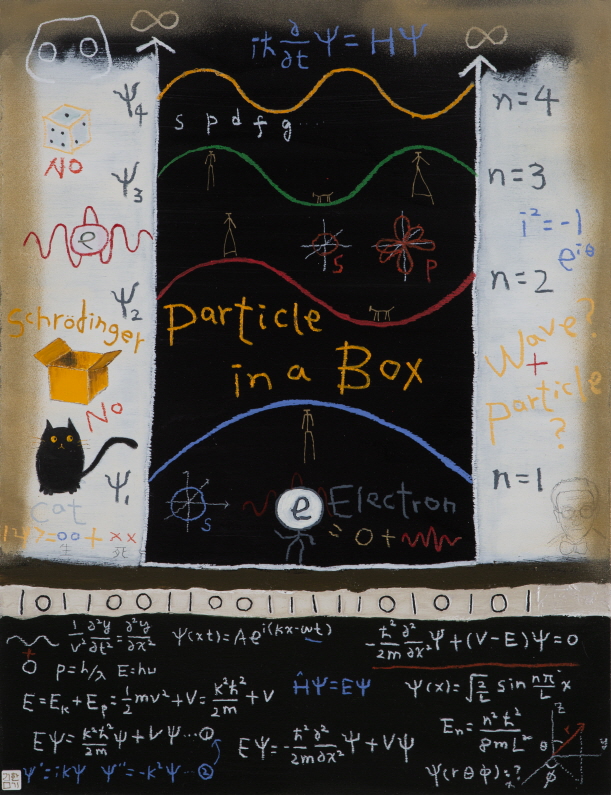 ∞ ∞
iħ ∂/∂t Ψ = HΨ
Ψ4
n=4
s p d f g ....
NO
Ψ3
n=3
i²=-1
e^iθ
e
S P
Ψ2
n=2
Schrödinger
Particle
in a Box
Wave?
+
Particle
?
No
Ψ1
n=1
S
e Electron
0+
cat
|Ψ>=oo+××
生 死
101100110001111101010101
1/v² ∂²y/∂t² = ∂²y/∂x²
Ψ(xt)=Ae^i(kx-wt)
-ħ²/2m ∂²/∂x² Ψ+(V-E)Ψ=0
+
O p=h/λ E=hυ
E=Ek+Ep=1/2 mv²+V=k²ħ²/2m+V
ĤΨ=EΨ
Ψ(x)=√2/L sin nπ/L x
EΨ=k²ħ²/2m Ψ+VΨ...①
EΨ=-ħ²/2m ∂²/∂x² Ψ+VΨ
En=n²h²/8mL²
Ψ'=ikΨ Ψ''=-k²Ψ...②
Ψ(rθφ)=?
z
r
θ
y
φ
x